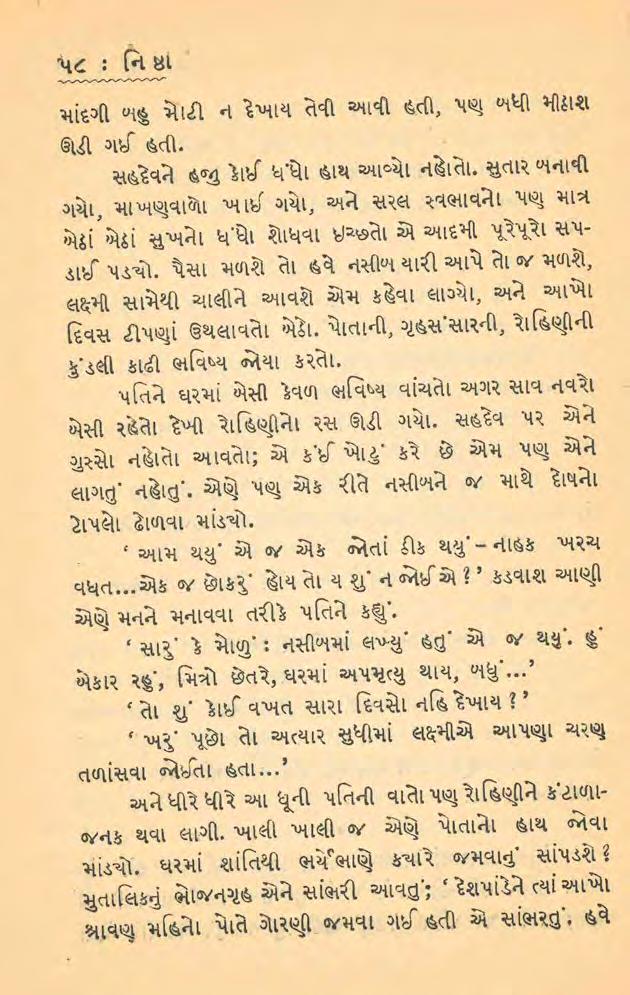 ૫૮ : નિષ્ઠા
માંદગી બહુ મોટી ન દેખાય તેવી આવી હતી, પણ બધી મીઠાશ
ઊડી ગઈ હતી.
સહદેવને હજુ કોઈ ધંધો હાથ આવ્યો નહોતો. સુતાર બનાવી
ગયો, માખણવાળો ખાઈ ગયો, અને સરલ સ્વભાવનો પણ માત્ર
બેઠાં બેઠાં સુખનો ધંધો શોધવા ઇચ્છતો એ આદમી પૂરેપૂરો સપ-
ડાઈ પડચો. પૈસા મળશે તો હવે નસીબ યારી આપે તો જ મળશે,
લક્ષ્મી સામેથી ચાલીને આવશે એમ કહેવા લાગ્યો, અને આખો
દિવસ ટીપણાં ઉથલાવતો બેઠો. પોતાની, ગૃહસંસારની, રોહિણીની
કુંડલી કાઢી ભવિષ્ય જોયા કરતો.
પતિને ઘરમાં બેસી કેવળ ભવિષ્ય વાંચતો અગર સાવ નવરો
બેસી રહેતો દેખી રોહિણીનો રસ ઊડી ગયો. સહદેવ પર એને
ગુસ્સો નહોતો આવતો; એ કંઈ ખોટું કરે છે એમ પણ એને
લાગતું નહોતું. એણે પણ એક રીતે નસીબને જ માથે દોષનો
ટોપલો ઢોળવા માંડચો.
‘ આમ થયું એ જ એક જોતાં ઠીક થયું – નાહક ખરચ
વધત...એક જ છોકરું હોય તો ય શું ન જોઈએ ?’ કડવાશ આણી
એણે મનને મનાવવા તરીકે પતિને કહ્યું.
‘ સારું કે મોળું : નસીબમાં લખ્યું હતું એ જ થયું. હું
બેકાર રહું, મિત્રો છેતરે, ઘરમાં અપમૃત્યુ થાય, બધું...’
‘ તો શું કોઈ વખત સારા દિવસો નહિ દેખાય ?’
‘ ખરું પૂછો તો અત્યાર સુધીમાં લક્ષ્મીએ આપણા ચરણ
તળાંસવા જોઈતા હતા...’
અને ધીરે ધીરે આ ધૂની પતિની વાતો પણ રોહિણીને કંટાળા-
જનક થવા લાગી. ખાલી ખાલી જ એણે પોતાનો હાથ જોવા
માંડચો. ઘરમાં શાંતિથી ભર્યેભાણે કચારે જમવાનું સાંપડશે ?
મુતાલિકનું ભોજનગૃહ એને સાંભરી આવતું; ‘ દેશપાંડેને ત્યાં આખો
શ્રાવણ મહિનો પોતે ગોરણી જમવા ગઈ હતી એ સાંભરતું. હવે